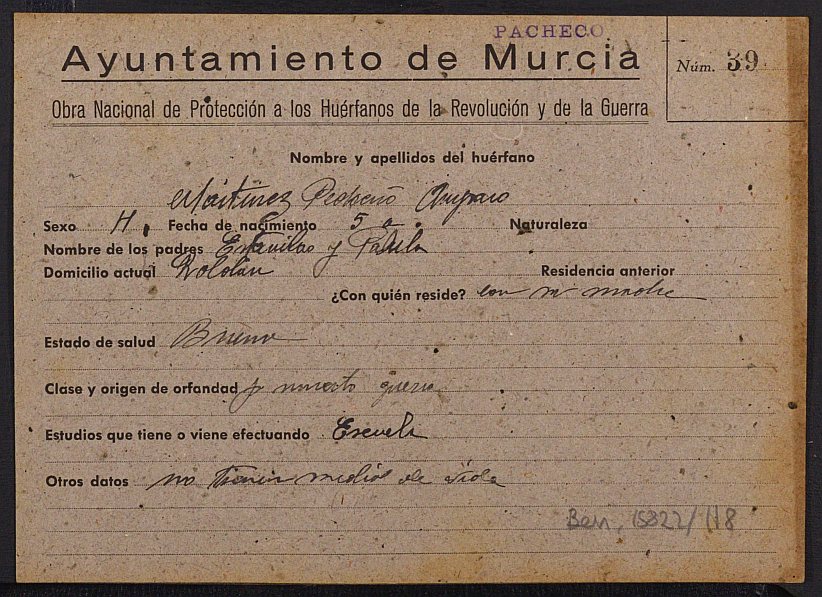 PACHECO
Ayuntamiento de Murcia
Núm. 39
Obra Nacional de Protección a los Huérfanos de la Revolución y de la Guerra
Nombre y apellidos del huérfano
Martinez Pedreño Amparo
Sexo H. Fecha de nacimiento 5 a. Naturaleza
Nombre de los padres y
Domicilio actual Roldan Residencia anterior
¿Con quién reside? con su madre
Estado de salud Bueno
Clase y origen de orfandad p muerto guerra
Estudios que tiene o viene efectuando Escuela
Otros datos no tienen medios de vida
Ben, 15822/118